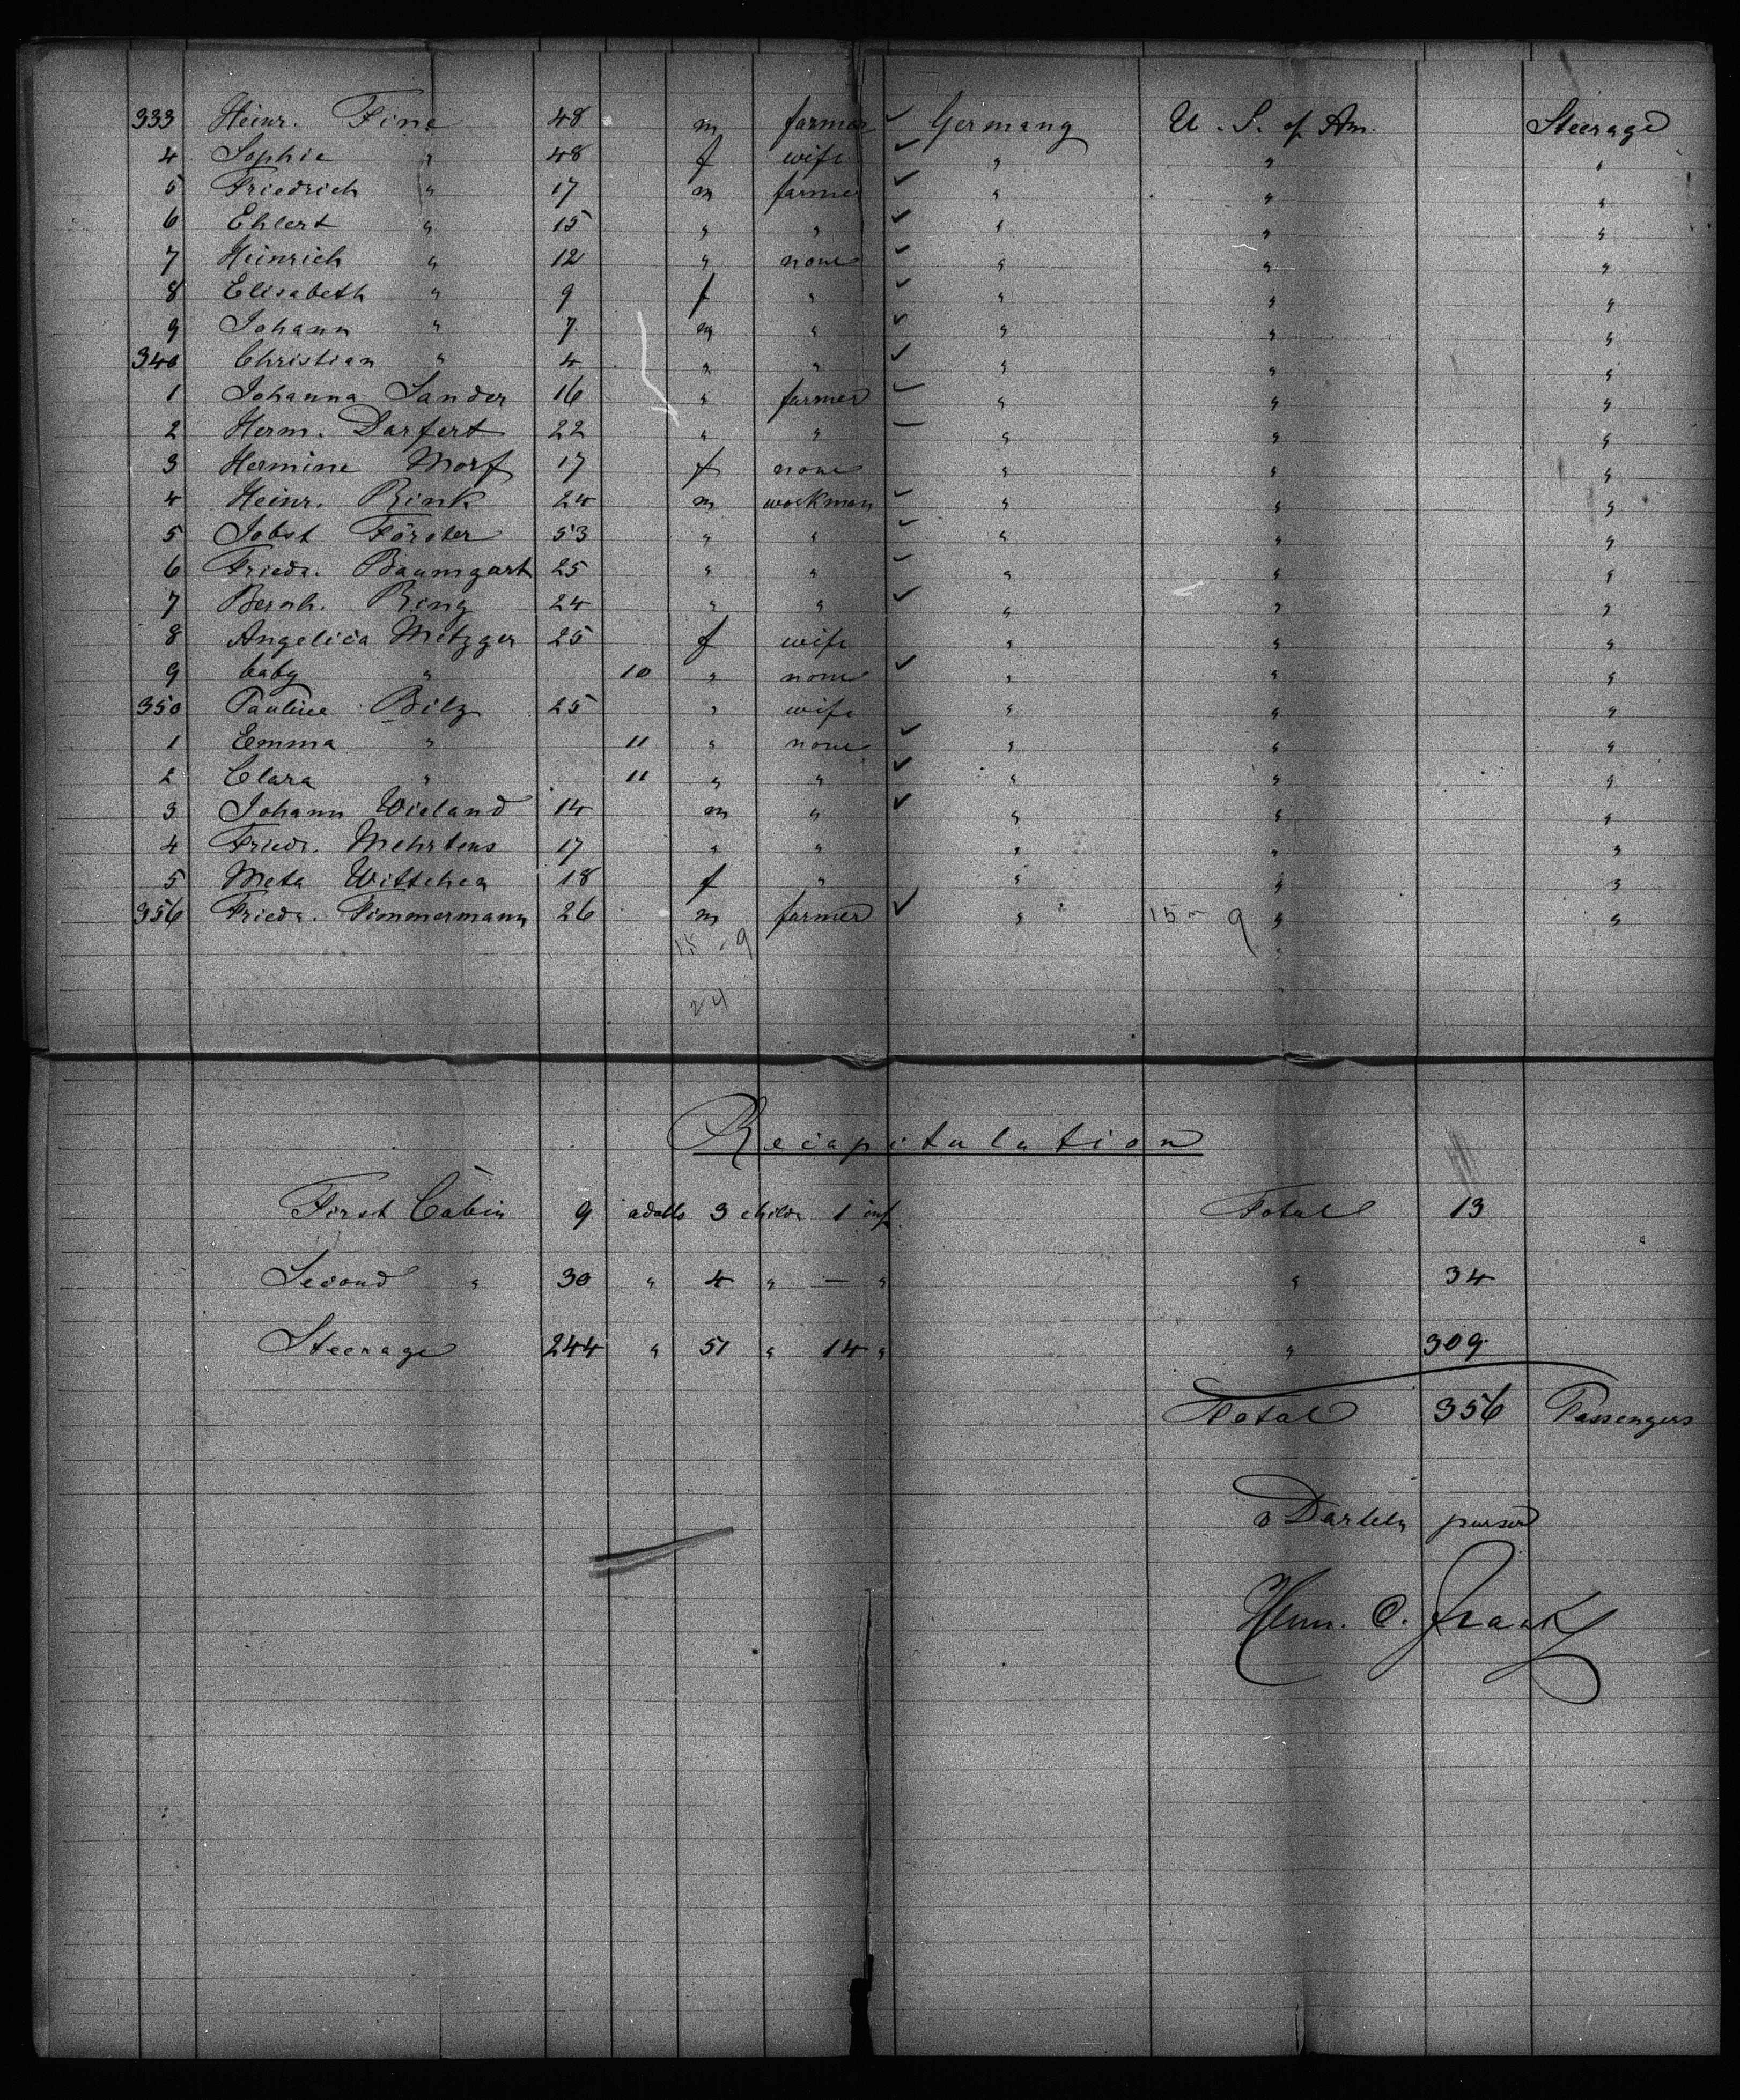 333 Heinr. Fine 48 m farmer ✓ Germany U. S. of Am. Steerage
4 Sophie " 48 f wife ✓ " " "
5 Friedrich " 17 m farmer ✓ " " "
6 Ehlert " 15 " " ✓ " " "
7 Heinrich " 12 " none ✓ " " "
8 Elisabeth " 9 f " ✓ " " "
9 Johann " 7 m " ✓ " " "
340 Christian " 4 " " ✓ " " "
1 Johanna Sander 16 " farmer ✓ " " "
2 Herm. Darfert 22 " " — " " "
3 Hermine Morf 17 f none " " "
4 Heinr. Rink 24 m workman ✓ " " "
5 Jobst Förster 53 " " ✓ " " "
6 Friedr. Baumgart 25 " " ✓ " " "
7 Bernh. Ring 24 " " ✓ " " "
8 Angelica Metzger 25 f wife " " "
9 baby " 10 " none ✓ " " "
350 Pauline Bilz 25 " wife " " "
1 Emma " 11 " none ✓ " " "
2 Clara " 11 " " ✓ " " "
3 Johann Wieland 14 m " ✓ " " "
4 Friedr. Mehrtens 17 " " " " "
5 Meta Wittchen 18 f " " " "
356 Friedr. Timmermann 26 m farmer ✓ " 15 - 9 " "
15 - 9
24
Recapitulation
First Cabin 9 adults 3 childr 1 inf. Total 13
Second " 30 " 4 " — " " 34
Steerage 244 " 51 " 14 " " 309
Total 356 Passengers
purser
Herm. C.